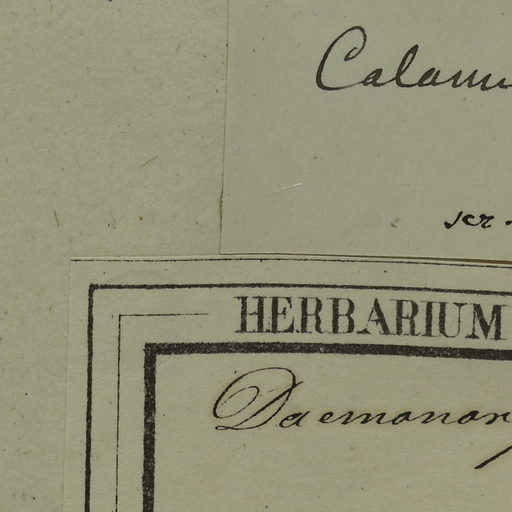 Calamu
scr.
HERBARIUM
Daemonorp